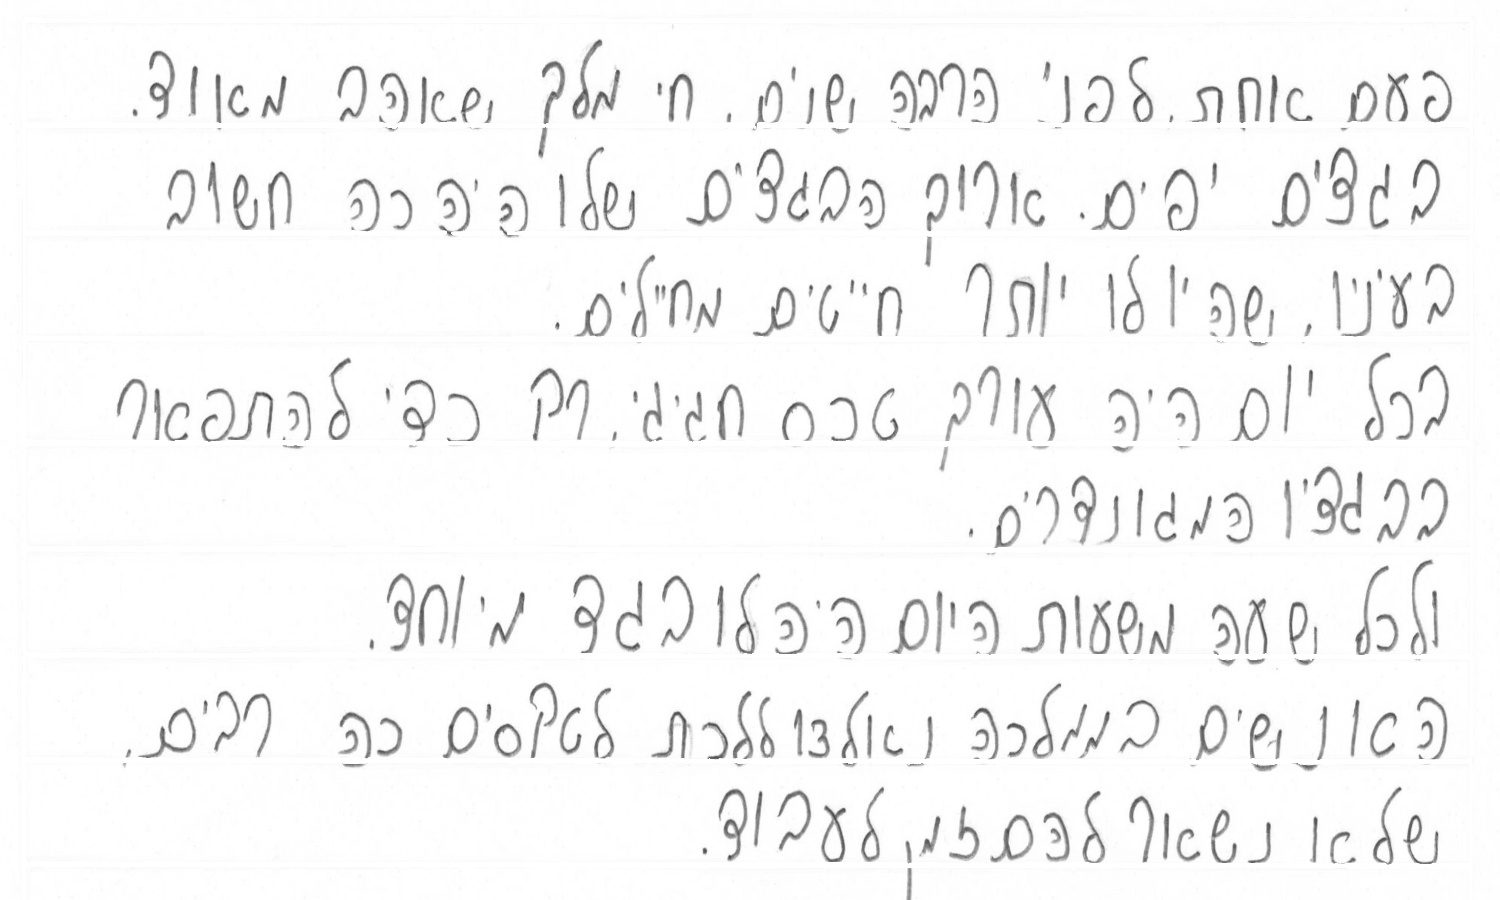 פעם אחת, לפני הרבה שנים, חי מלך שאהב מאוד.
בגדים יפים. אורך הבגדים שלו היה כה חשוב
בעיניו, שהיו לו יותר חייטים מחיילים.
בכל יום היה עורך טכס חגיגי, רק כדי להתפאר
בבגדיו המגונדרים.
ולכל שעה משעות היום היה לו בגד מיוחד.
האנשים בממלכה נאלצו ללכת לטקסים כה רבים,
שלא נשאר להם זמן לעבוד.